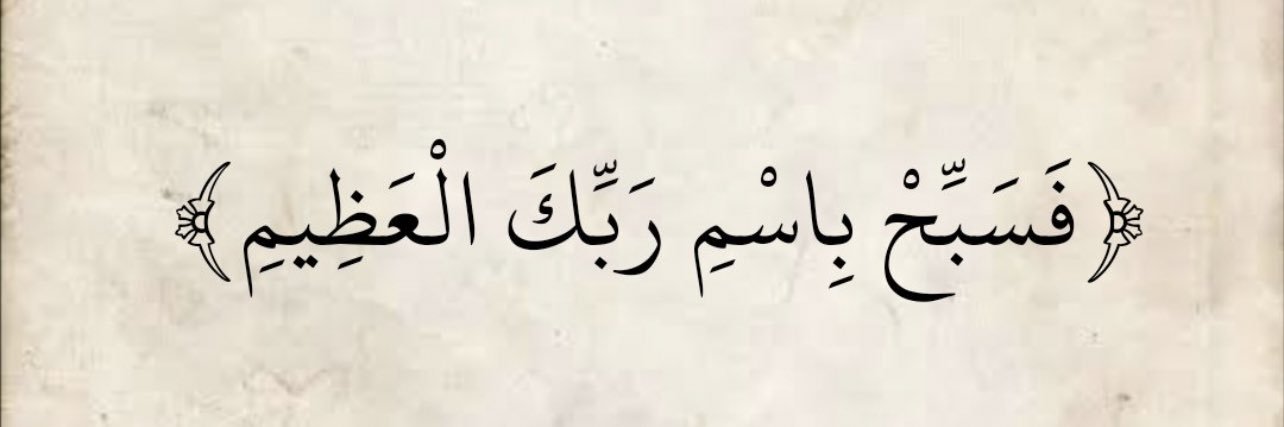 ﴿فَسَبِّحْ بِاسْمِ رَبِّكَ الْعَظِيمِ﴾